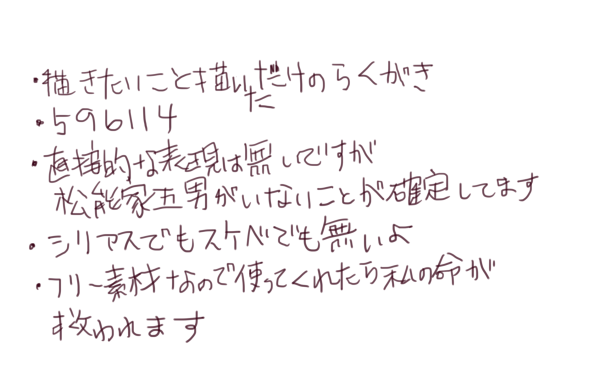 ・描きたいこと描いただけのらくがき
・596114
・直接的な表現は無いですが
松能家五男がいないことが確定してます
・シリアスでもスケベでも無いよ
・フリー素材なので使ってくれたら私の命が
救われます